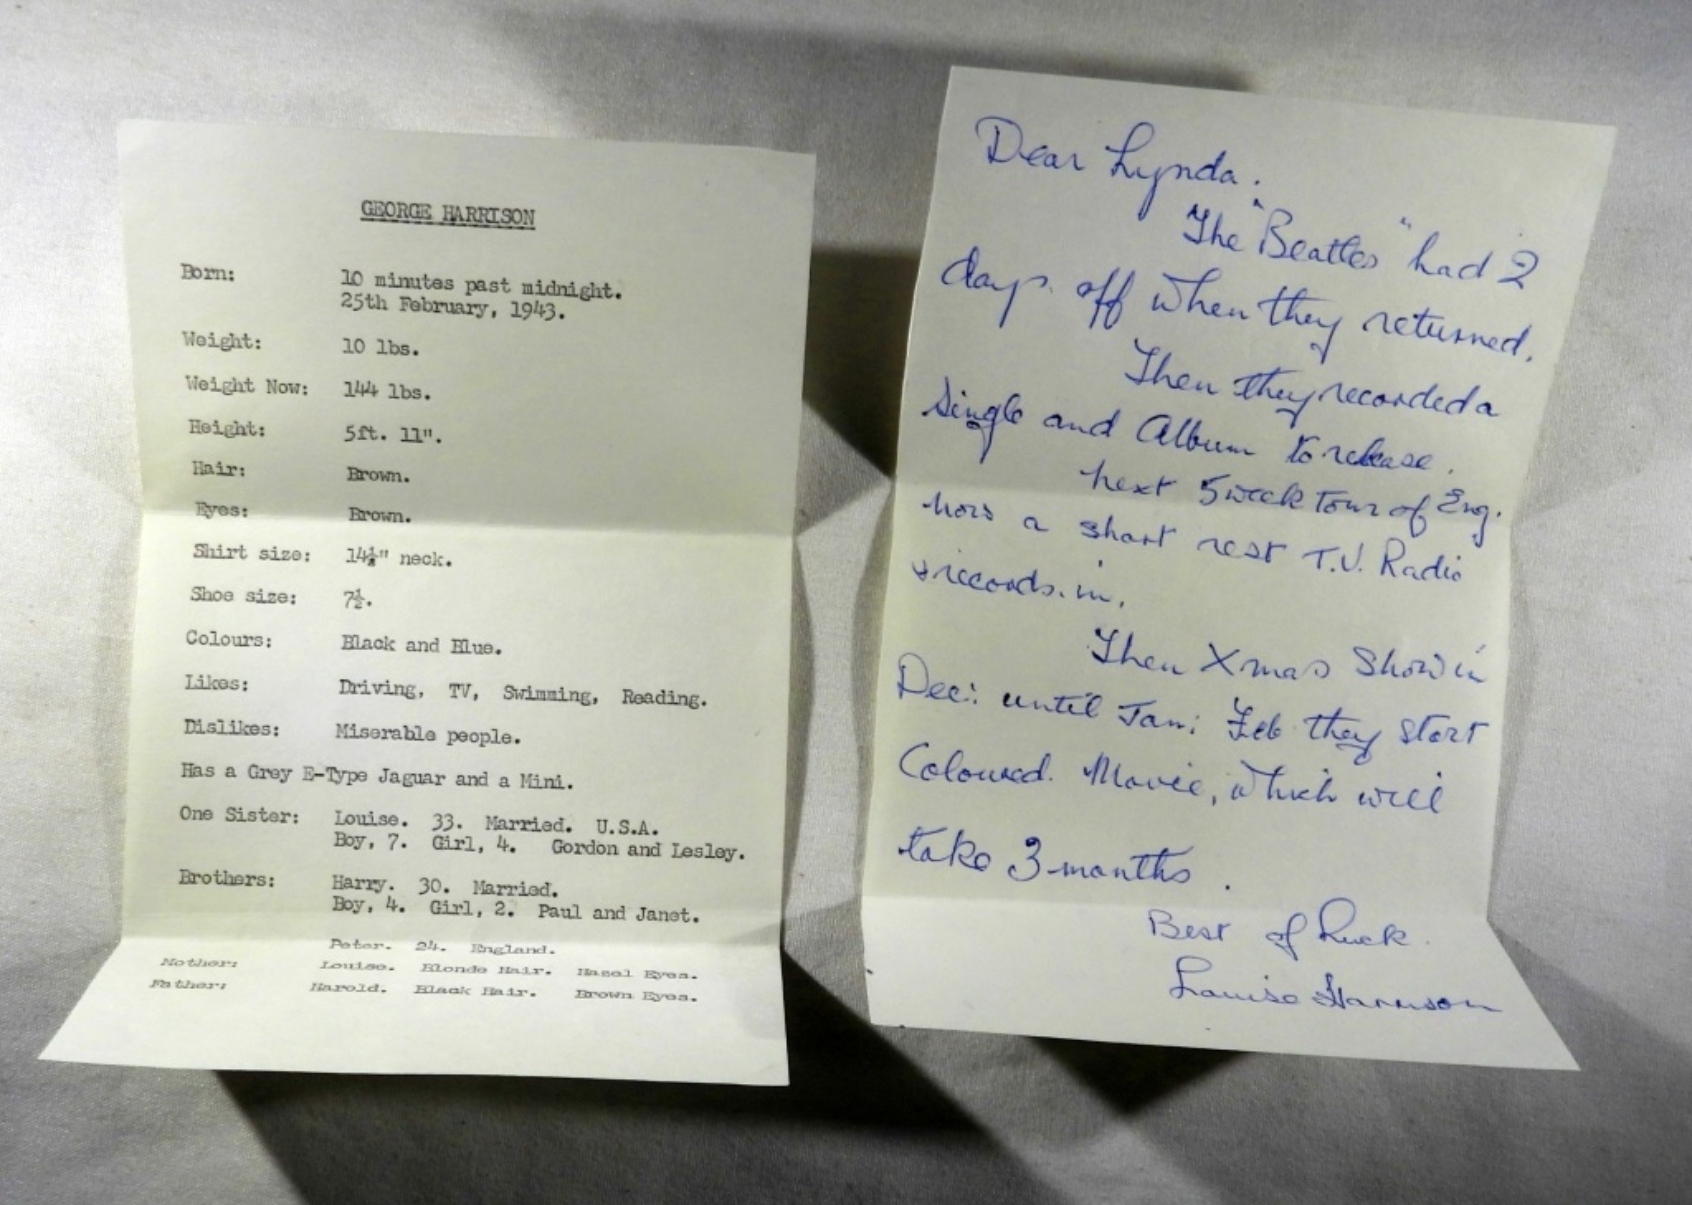 GEORGE HARRISON
Born: 10 minutes past midnight.
25th February, 1943.
Weight: 10 lbs.
Weight Now: 144 lbs.
Height: 5ft. 11".
Hair: Brown.
Eyes: Brown.
Shirt size: 14½" neck.
Shoe size: 7½.
Colours: Black and Blue.
Likes: Driving, TV, Swimming, Reading.
Dislikes: Miserable people.
Has a Grey E-Type Jaguar and a Mini.
One Sister: Louise. 33. Married. U.S.A.
Boy, 7. Girl, 4. Gordon and Lesley.
Brothers: Harry. 30. Married.
Boy, 4. Girl, 2. Paul and Janet.
Peter. 24. England.
Mother: Louise. Blonde Hair. Hazel Eyes.
Father: Harold. Black Hair. Brown Eyes.
Dear Lynda.
The "Beatles" had 2
days off when they returned.
Then they recorded a
Single and Album to release.
next 5 week Tour of Eng.
now a short rest T.V. Radio
records. in.
Then Xmas Show in
Dec: until Jan: Feb they start
Coloured. Movie, which will
take 3 months.
Best of Luck.
Louise Harrison